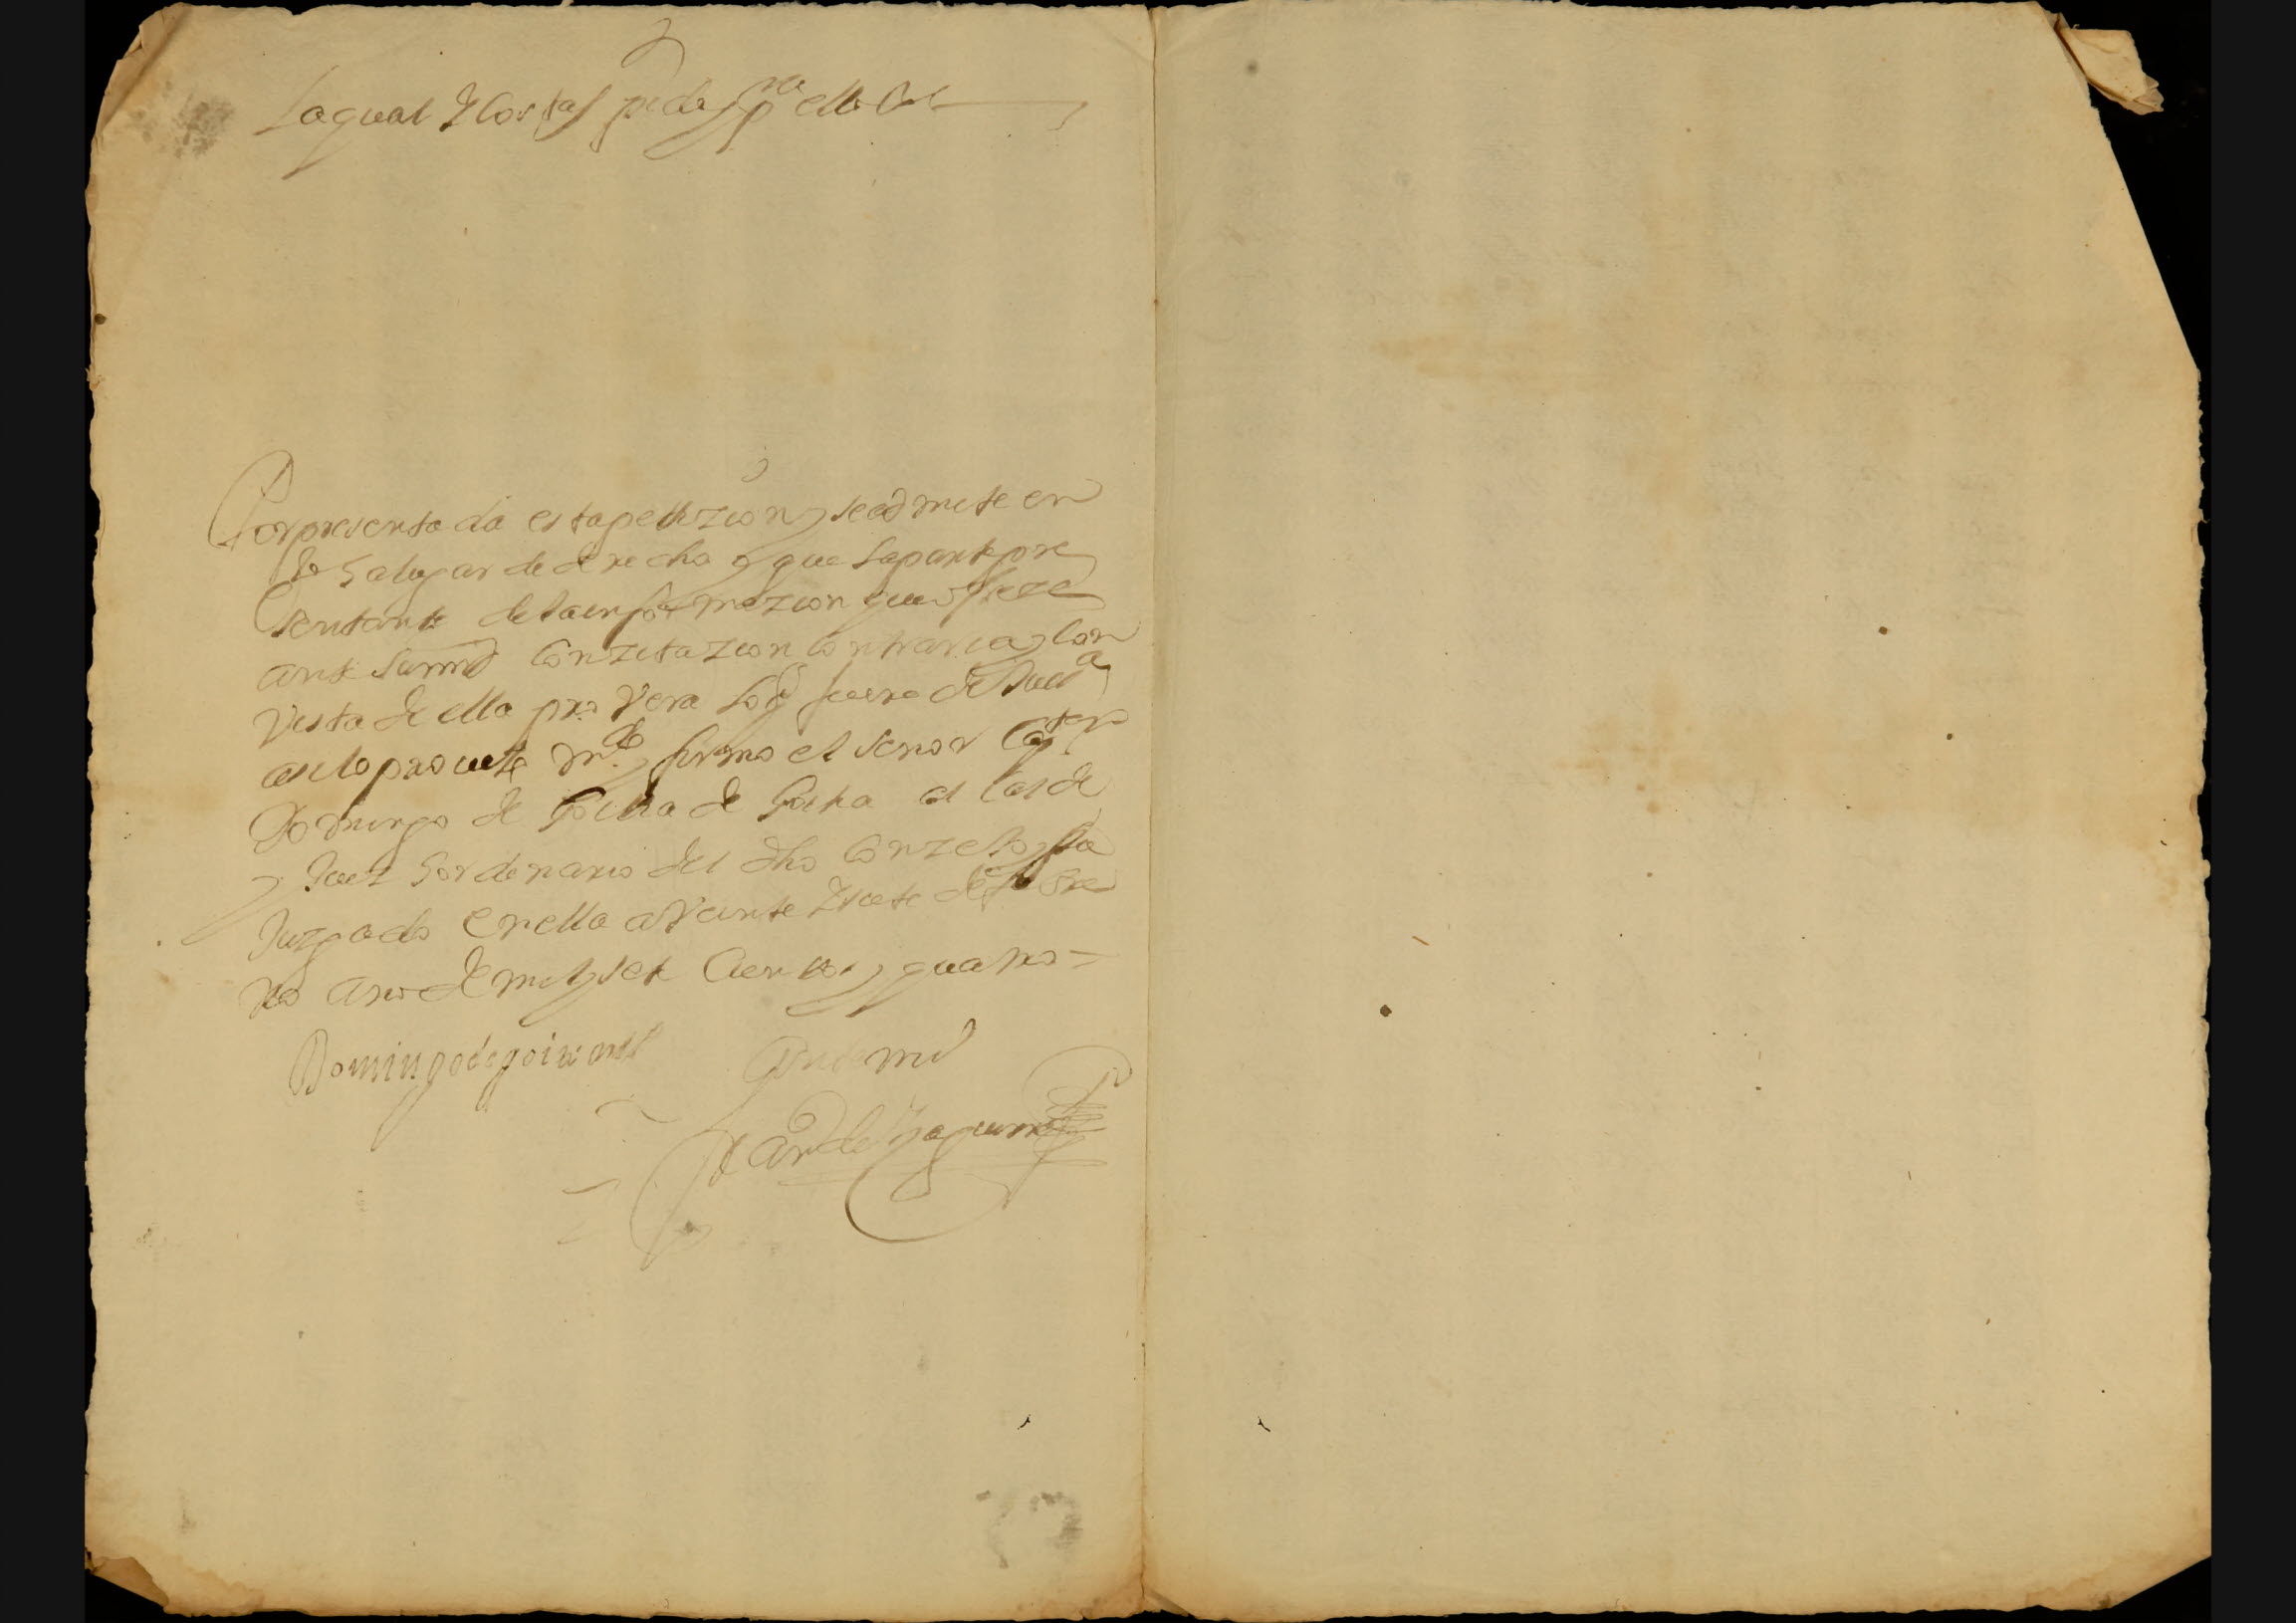 Laqual y Costas pido y pa ello etc
Por presentada esta petizion y se admite en
lo q a lugar de derecho y que la parte pre
sentante de la informazion que ofreze
ante su md con zitazion contraria y con
vista de ella pro Vera lo q fuere de Justa
asi lo proveyo mdo y firmo el senor Capan
Domingo de Goitia de Goitia al calde
y Juez hordenario del dho Conzejo y su
Juzgado en ella a Veinte y siete de
ro ano de mil y sete Cientos y quatro =
Domingo de goitia
Ante mi